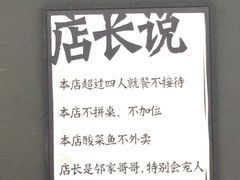 店长说
本店超过四人就餐不接待
本店不拼桌、不加位
本店酸菜鱼不外卖
店长是邻家哥哥,特别会宠人